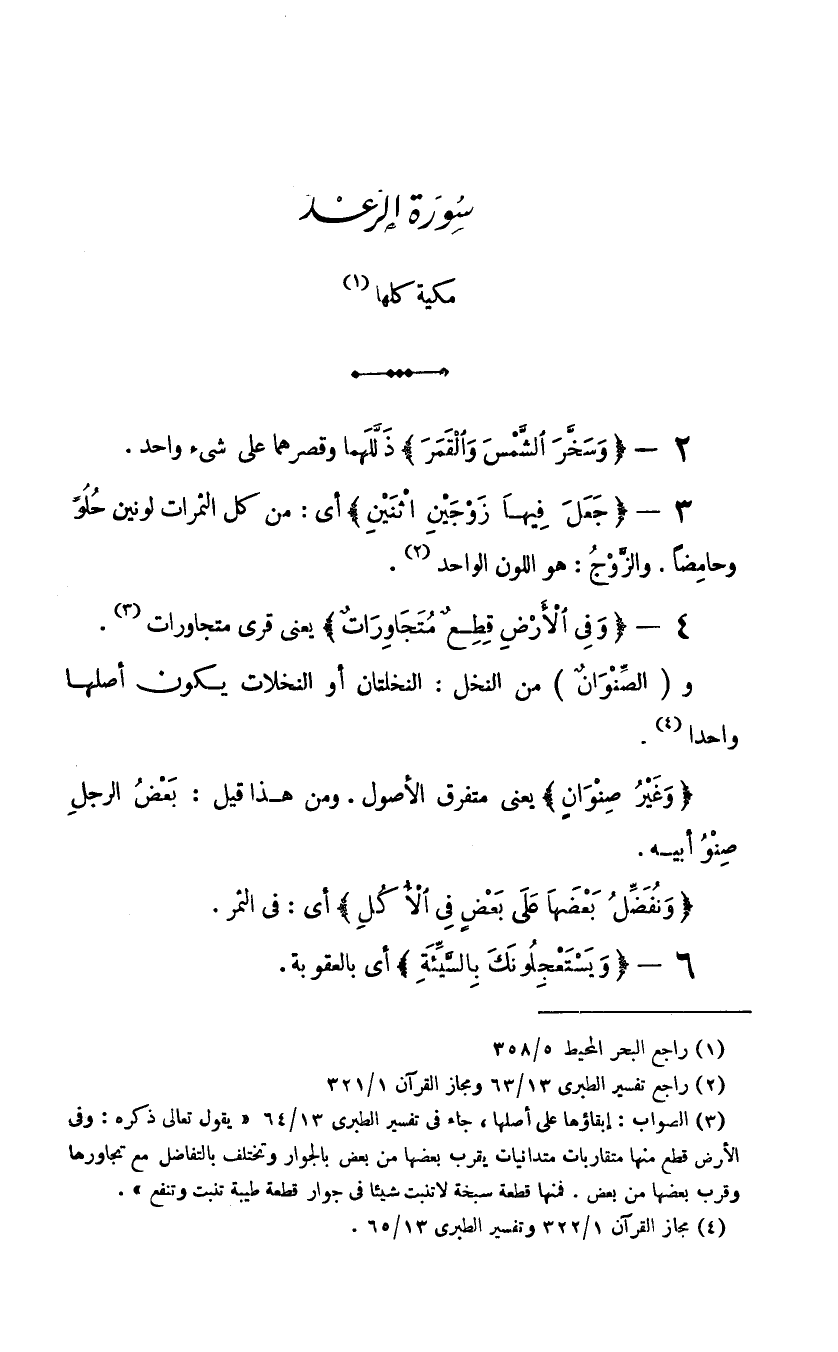 سُورَة الرَعْد
مكية كلها (١)
٢ — ﴿ وَسَخَّرَ ٱلشَّمْسَ وَٱلْقَمَرَ ﴾ ذَلَّلَهما وقصرهما على شىء واحد .
٣ — ﴿ جَعَلَ فِيهاَ زَوْجَيْنِ اثْنَيْنِ ﴾ أى : من كل الثمرات لونين حُلُوًّا
وحامِضاً . والزَّوْجُ : هو اللون الواحد (٢) .
٤ — ﴿ وَفِى ٱلْأَرْضِ قِطِعٌ مُتَجَاوِرَاتٌ ﴾ يعنى قرى متجاورات (٣) .
و ( الصِّنْوَانٌ ) من النخل : النخلتان أو النخلات يكون أصلها
واحدا (٤) .
﴿ وَغَيْرُ صِنْوَانٍ ﴾ يعنى متفرق الأصول . ومن هذا قيل : بَعْضُ الرجلِ
صِنْوُ أبيه .
﴿ وَنُفَضِّلُ بَعْضَهاَ عَلَى بَعْضٍ فِى ٱلْأُكُلِ ﴾ أى : فى الثمر .
٦ — ﴿ وَيَسْتَعْجِلُونَكَ بِالسَّيِّئَةِ ﴾ أى بالعقوبة .
(١) راجع البحر المحيط ٣٥٨/٥
(٢) راجع تفسير الطبرى ٦٣/١٣ ومجاز القرآن ٣٢١/١
(٣) الصواب : إبقاؤها على أصلها ، جاء فى تفسير الطبرى ٦٤/١٣ « يقول تعالى ذكره : وفى
الأرض قطع منها متقاربات متدانيات يقرب بعضها من بعض بالجوار وتختلف بالتفاضل مع تجاورها
وقرب بعضها من بعض . فمنها قطعة سبخة لاتنبت شيئا فى جوار قطعة طيبة تنبت وتنفع » .
(٤) مجاز القرآن ٣٢٢/١ وتفسير الطبرى ٦٥/١٣ .